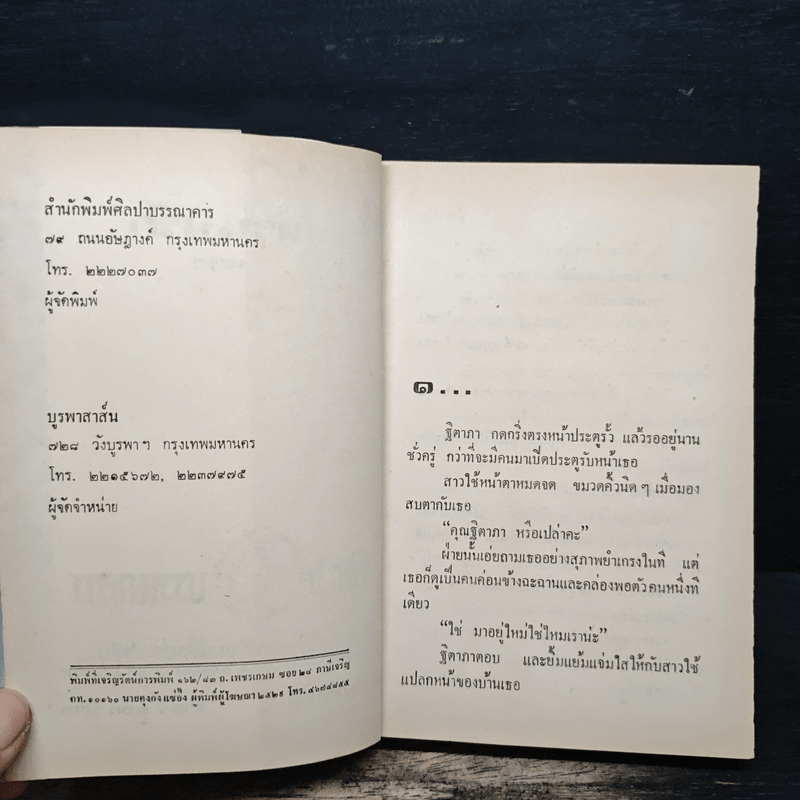 สำนักพิมพ์ศิลปาบรรณาคาร
๗๙ ถนนอัษฎางค์ กรุงเทพมหานคร
โทร. ๒๒๒๗๐๓๗
ผู้จัดพิมพ์
บูรพาสาส์น
๗๒๘ วังบูรพาฯ กรุงเทพมหานคร
โทร. ๒๒๑๕๖๗๒, ๒๒๓๗๙๗๕
ผู้จัดจำหน่าย
พิมพ์ที่เจริญรัตน์การพิมพ์ ๑๖๒/๘๓ ถ.เพชรเกษม ซอย ๒๘ ภาษีเจริญ
กท. ๑๐๑๖๐ นายคุงกัง แซ่อึง ผู้พิมพ์ผู้โฆษณา ๒๕๒๙ โทร. ๔๖๘๔๘๕๕
๑...
ฐิตาภา กดกริ่งตรงหน้าประตูรั้ว แล้วรออยู่นาน
ชั่วครู่ กว่าที่จะมีคนมาเปิดประตูรับหน้าเธอ
สาวใช้หน้าตาหมดจด ขมวดคิ้วนิดๆ เมื่อมอง
สบตากับเธอ
“คุณฐิตาภา หรือเปล่าคะ”
ฝ่ายนั้นเอ่ยถามเธออย่างสุภาพยำเกรงในที แต่
เธอก็ดูเป็นคนค่อนข้างฉะฉานและคล่องพอตัวคนหนึ่งที
เดียว
“ใช่ มาอยู่ใหม่ใช่ไหมเราน่ะ”
ฐิตาภาตอบ และยิ้มแย้มแจ่มใสให้กับสาวใช้
แปลกหน้าของบ้านเธอ